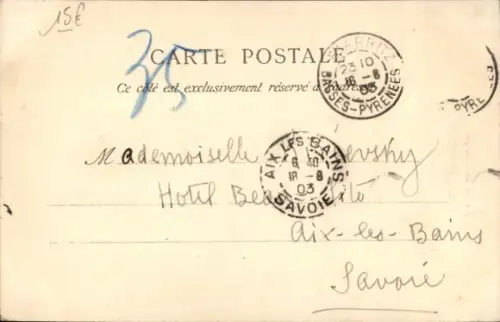 15€
35
CARTE POSTALE
Ce côté est exclusivement réservé à
BIARRITZ
23 10
16 - 8
03
BASSES-PYRENÉES
PYRÉ
AIX LES BAINS
6 40
18 - 8
03
SAVOIE
Mademoiselle
Hotel
Aix-les-Bains
Savoie